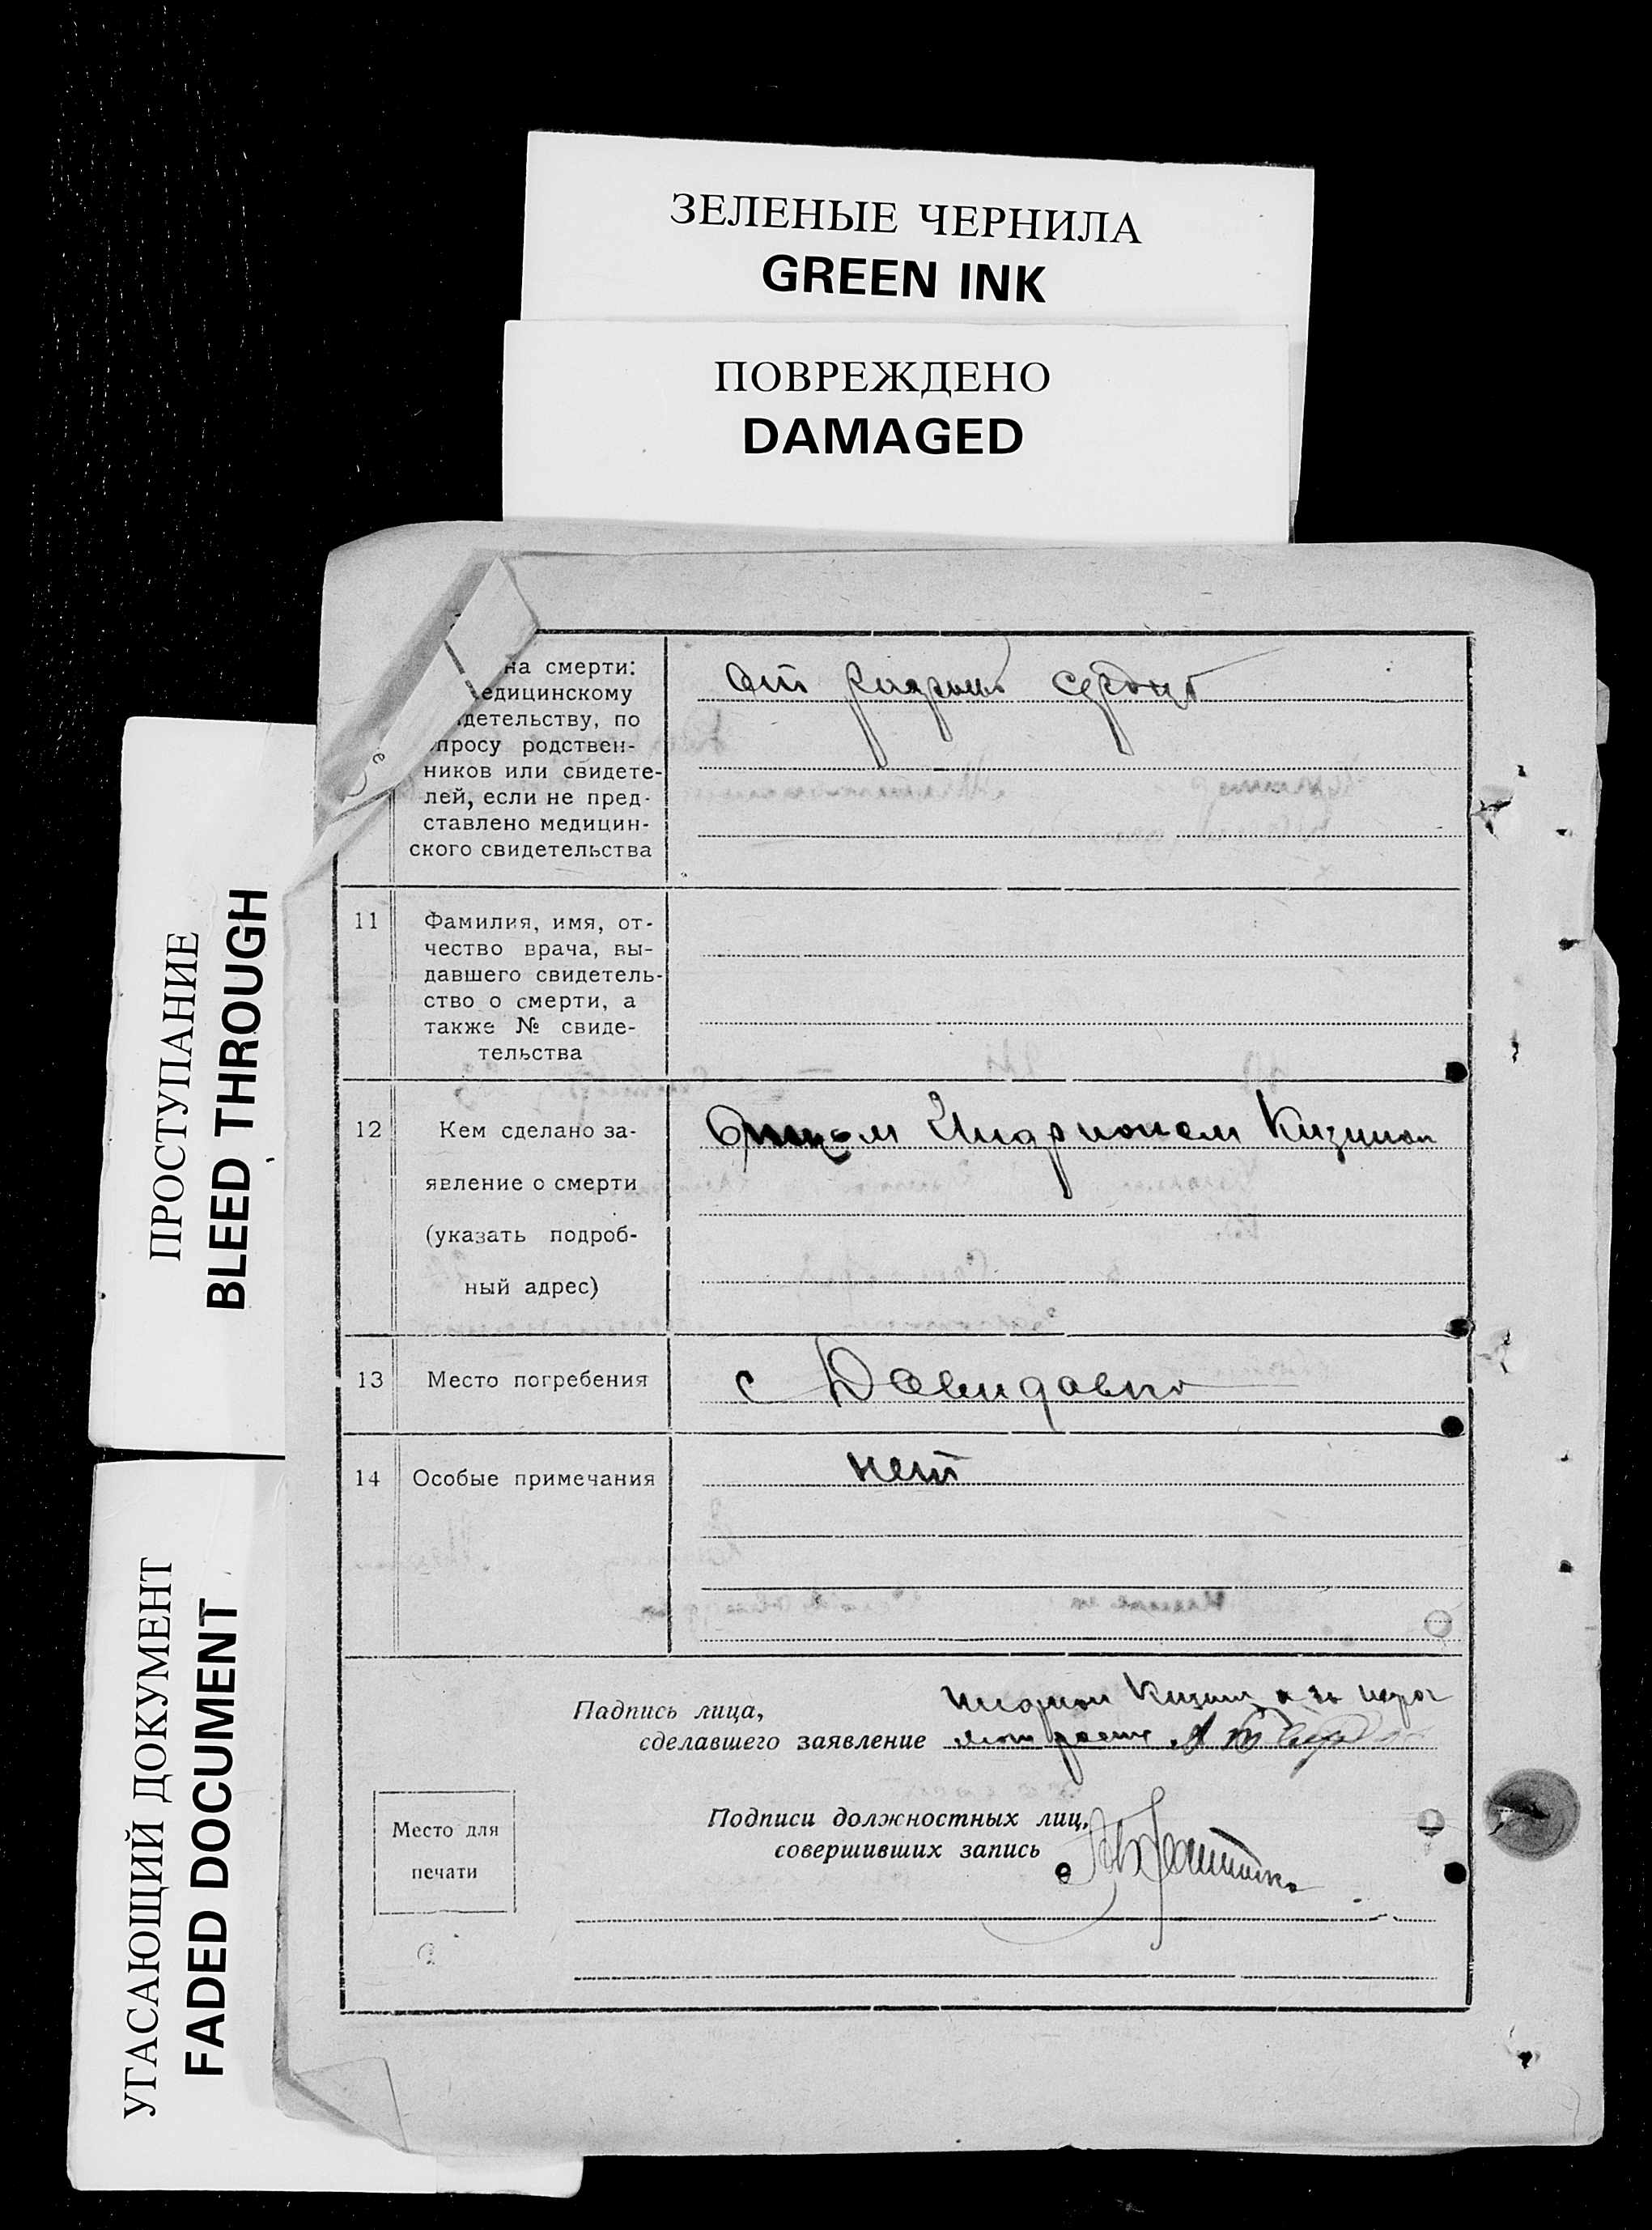 ЗЕЛЕНЫЕ ЧЕРНИЛА
GREEN INK
ПОВРЕЖДЕНО
DAMAGED
ПРОСТУПАНИЕ
BLEED THROUGH
УГАСАЮЩИЙ ДОКУМЕНТ
FADED DOCUMENT
на смерти:
едицинскому
детельству, по
просу родствен-
ников или свидете-
лей, если не пред-
ставлено медицин-
ского свидетельства
от сердца
11
Фамилия, имя, от-
чество врача, вы-
давшего свидетель-
ство о смерти, а
также № свиде-
тельства
12
Кем сделано за-
явление о смерти
(указать подроб-
ный адрес)
Отцом
13
Место погребения
с Давидавка
14
Особые примечания
нет
Падпись лица,
сделавшего заявление
Место для
печати
Подписи должностных лиц,
совершивших запись